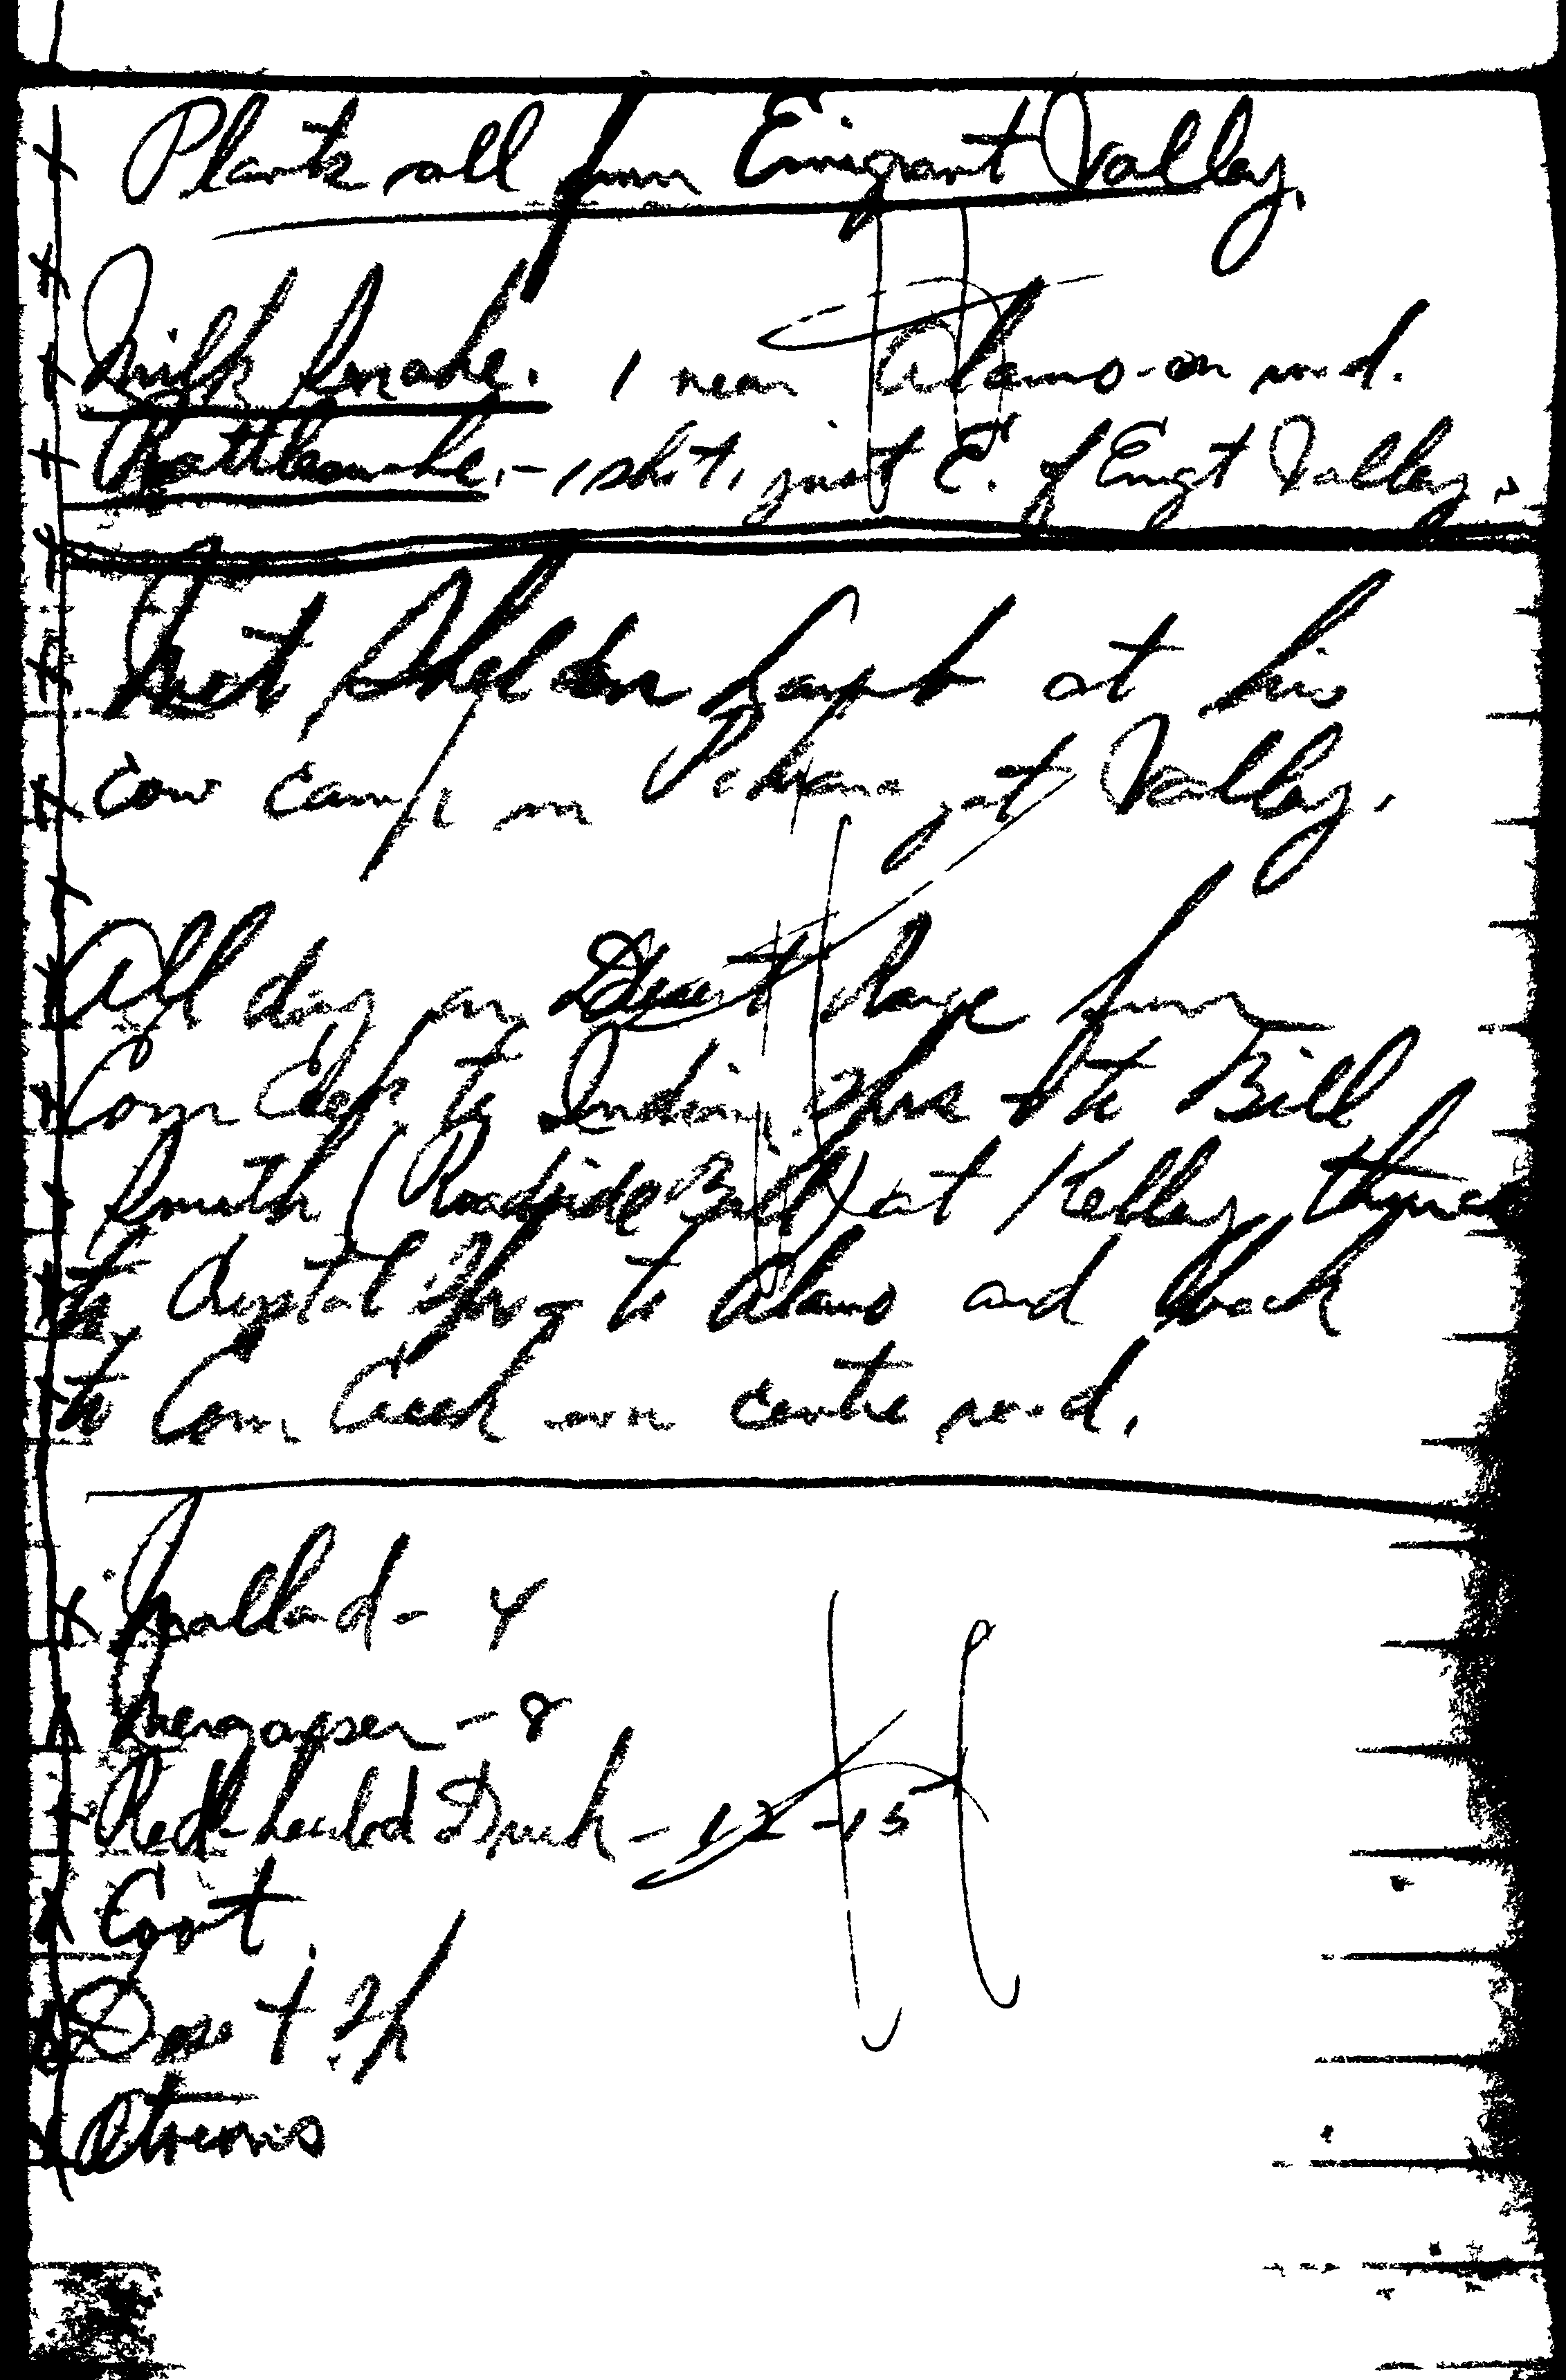 Plants all from Emigrant Valley.
Milk Snake. 1 near Alamo - on road.
Rattlesnake. - 1 shot, just E. of Emigt Valley.
Met Sheldon Lamb at his
cow camp in Pahranagat Valley.
All day on Desert Range from
Corn Creek to Indian Spr. to Bill
Smith (Roadside Bill) at Kelley, thence
to Crystal Spr - to Alamo and back
to Corn Creek on centre road.
Mallard - 4
Merganser - 8
Red-headed Duck - 12-15
Coot